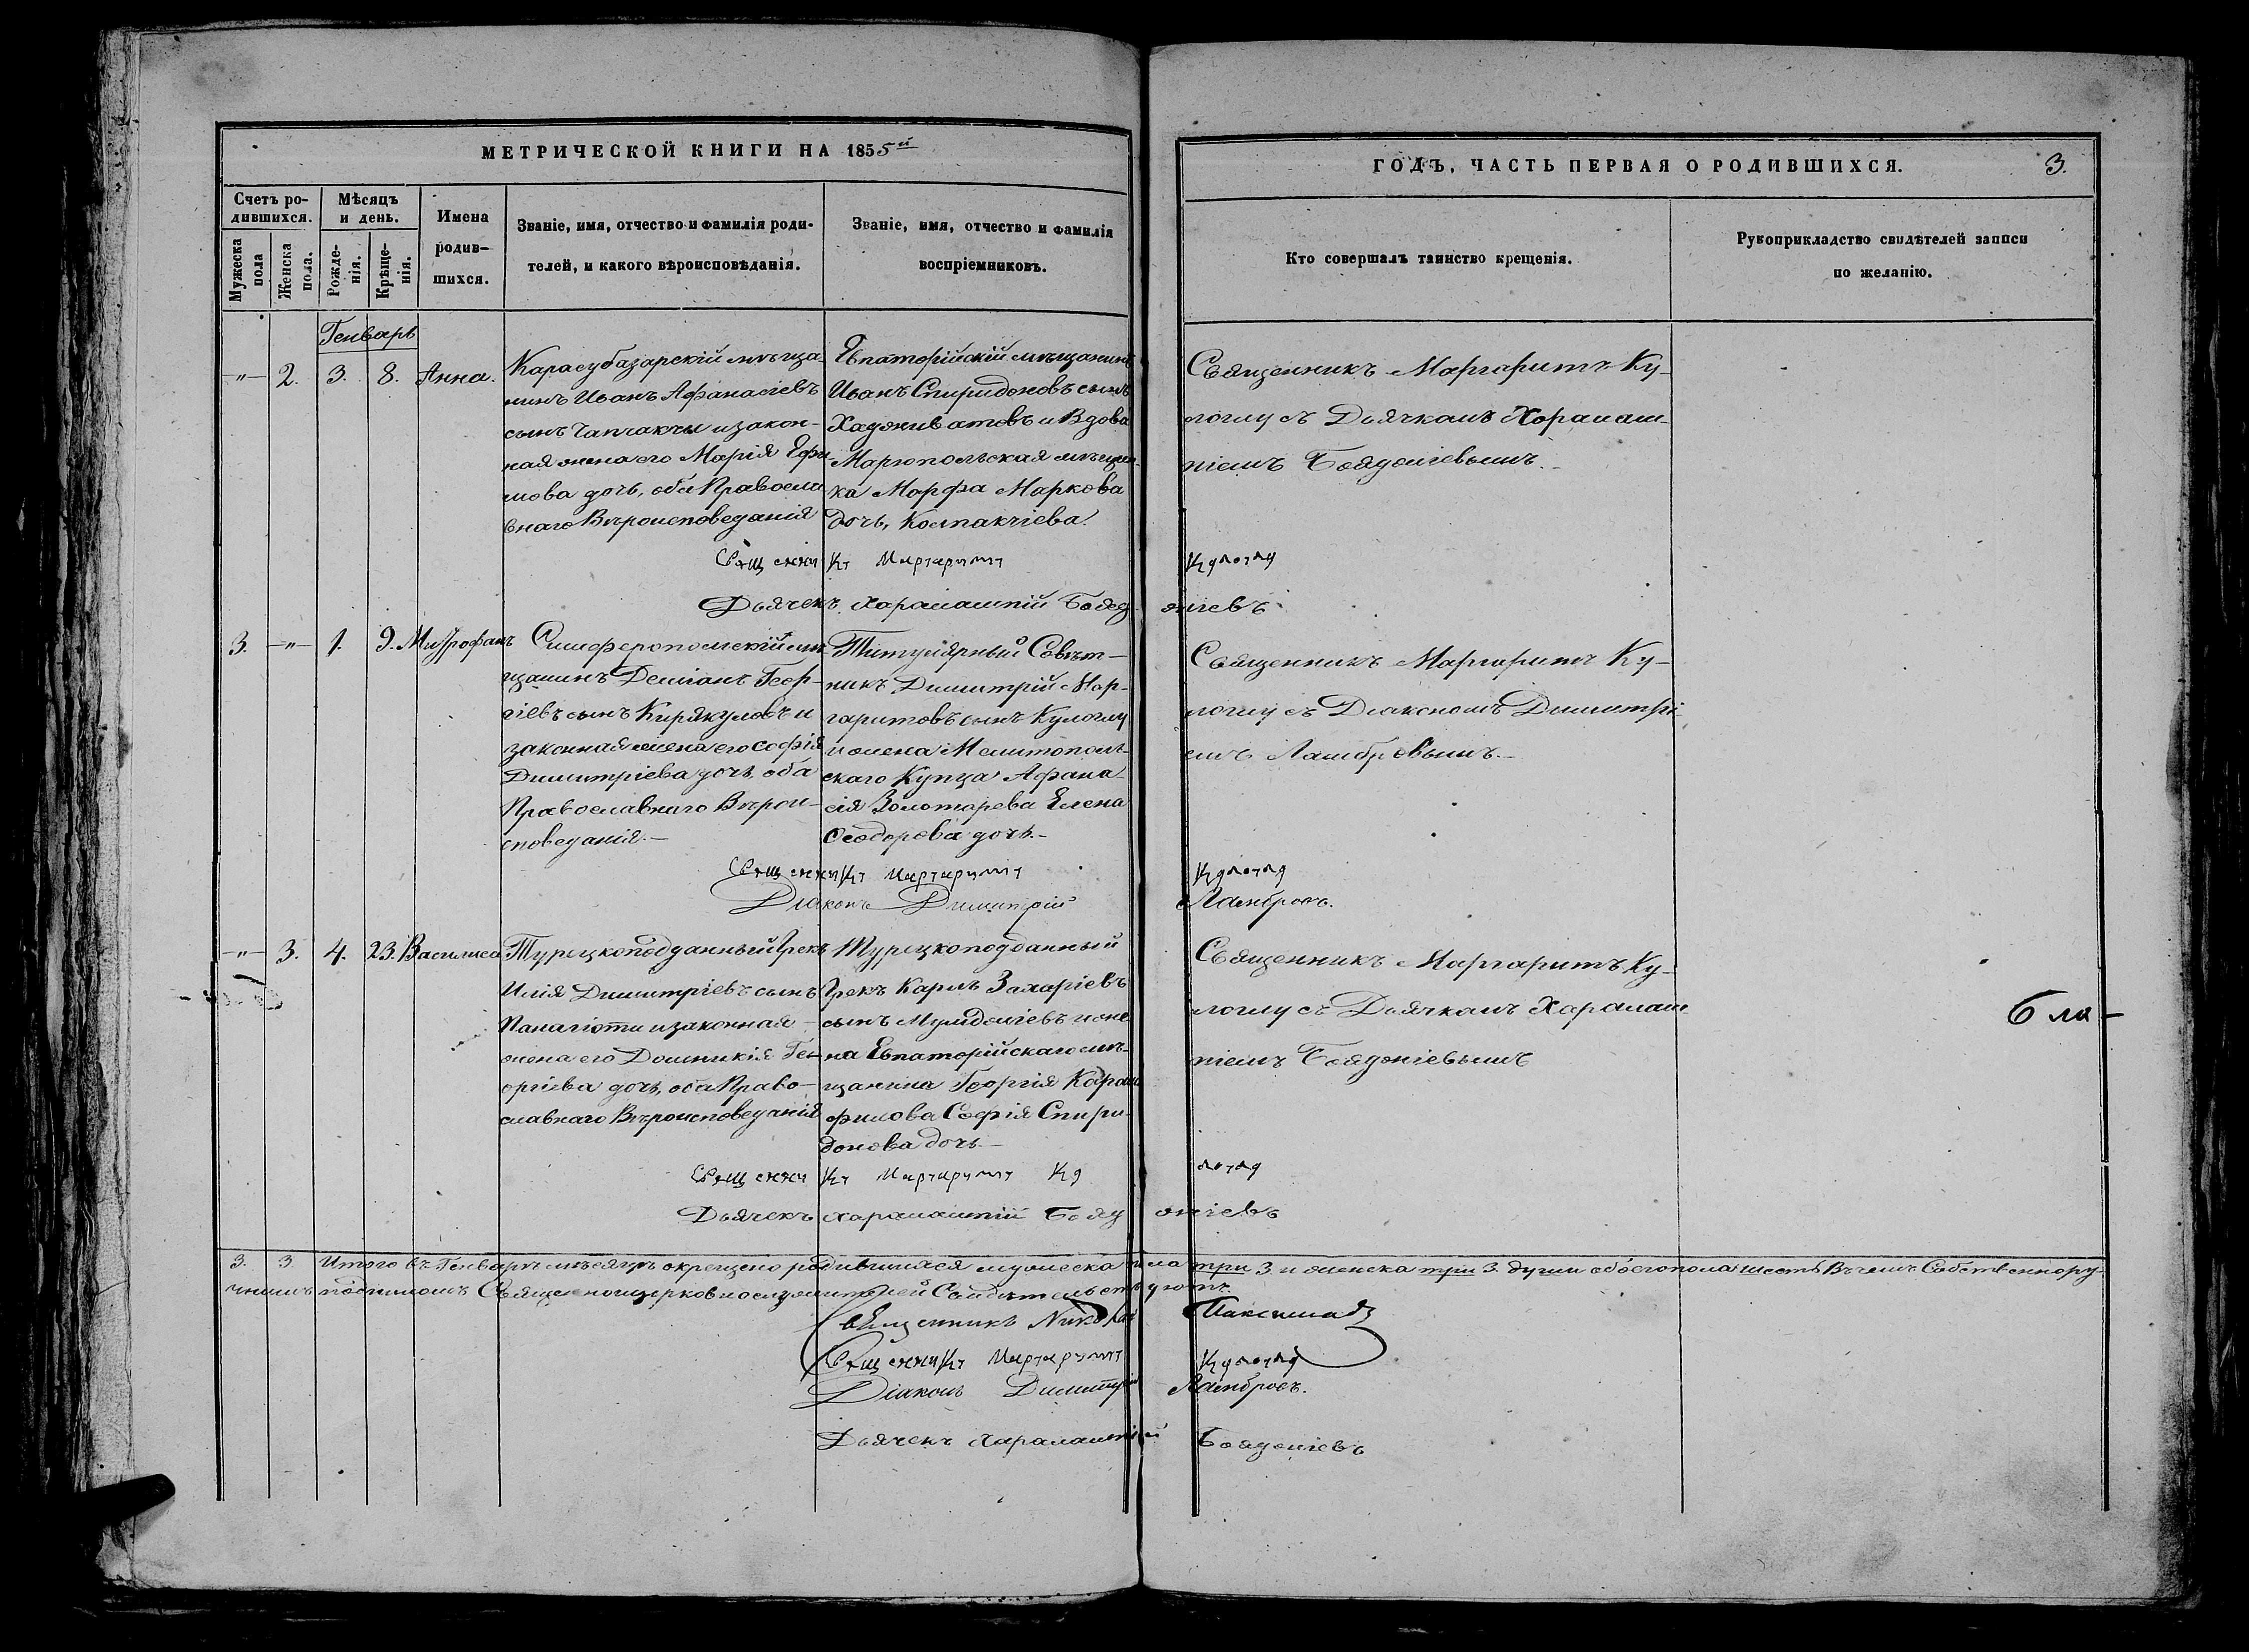 МЕТРИЧЕСКОЙ КНИГИ НА 1855й
ГОДЪ, ЧАСТЬ ПЕРВАЯ О РОДИВШИХСЯ.
3.
Счетъ ро-
дившихся.
Мѣсяцъ
и день.
Мужеска
пола
Женска
пола.
Рожде-
нія.
Крѣще-
нія.
Имена
родив-
шихся.
Званіе, имя, отчество и фамилія роди-
телей, и какого вѣроисповѣданія.
Званіе, имя, отчество и фамилія
воспріемниковъ.
Кто совершалъ таинство крещенія.
Рукоприкладство свидѣтелей записи
по желанію.
Генварь
-"- 2. 3. 8. Анна.
Карасубазарскій мѣща
нинъ Иванъ Афанасіевъ
сынъ Чапчакчы и закон-
ная жена его Марія Ефи-
мова дочь, оба Правосла
внаго Вѣроисповеданія
Евпаторійскій мѣщанинъ
Иванъ Спиридоновъ сынъ
Хадживатовъ и Вдова
Маріопольская мѣщан-
ка Марфа Маркова
дочь, Колпакчіева.
Священникъ Маргаритъ Ку-
логлу съ Дьячкомъ Харалам-
піемъ Бояджіевымъ.-
Священникъ Маргаритъ Кулоглу
Дьячекъ Харалампій Бояджіевъ
3. -"- 1. 9. Митрофанъ
Симферопольскій мѣ-
щанинъ Деміанъ Геор-
гіевъ сынъ Кирякуловъ и
законная жена его Софія
Димитріева дочь, оба
Православнаго Вѣрои-
споведанія.-
Титулярный Совѣт-
никъ Димитрій Мар-
гаритовъ сынъ Кулоглу
и жена Мелитополь-
скаго Купца Афана-
сія Золотарева Елена
Ѳеодорова дочь.-
Священникъ Маргаритъ Ку-
логлу съ Діакономъ Димитрі
емъ Ламбровымъ.-
Священникъ Маргаритъ Кулоглу
Діаконъ Димитрій Ламбровъ.
-"- 3. 4. 23. Василиса
Турецкоподданный Грекъ
Илія Димитріевъ сынъ
Панагіоти и законная-
жена его Домникія Ге-
оргіева дочь, оба Право-
славнаго Вѣроисповеданія
Турецкоподданный
Грекъ Карпъ Захаріевъ
сынъ и же
на Евпаторійскаго мѣ-
щанина Георгія Карам
филова Софія Спири-
донова дочь.-
Священникъ Маргаритъ Ку-
логлу съ Дьячкомъ Харалам
піемъ Бояджіевымъ
Священникъ Маргаритъ Кулоглу
Дьячекъ Харалампій Бояджіевъ
3. 3 Итого въ Генварѣ мѣсяцѣ окрещено родившихся мужеска пола три 3 и женска три 3. души обоего пола шесть Въ чемъ Собственнору-
чнымъ подписомъ Священноцерковнослужителей Свидѣтельствуютъ.
Священникъ Николай
Священникъ Маргаритъ Кулоглу
Діаконъ Димитрій Ламбровъ.
Дьячекъ Харалампій Бояджіевъ